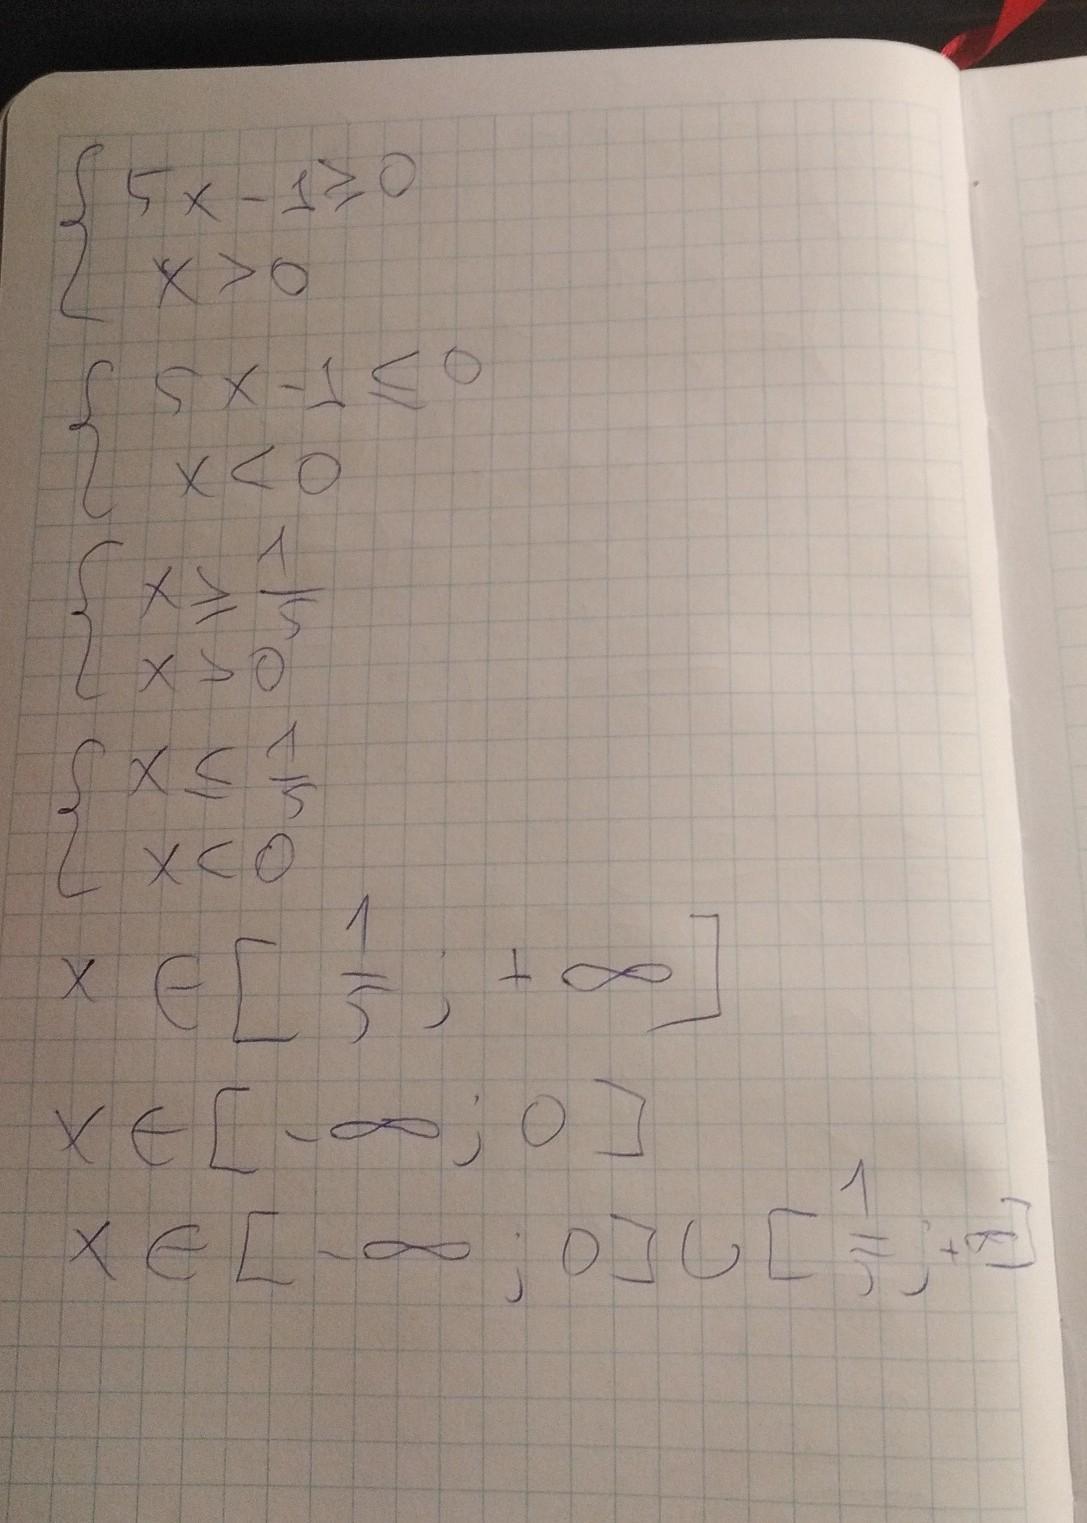 { 5x - 1 ≥ 0
x > 0
{ 5x - 1 ≤ 0
x < 0
{ x ≥ 1/5
x > 0
{ x ≤ 1/5
x < 0
x ∈ [ 1/5 ; +∞ ]
x ∈ [ -∞ ; 0 ]
x ∈ [ -∞ ; 0 ] ∪ [ 1/5 ; +∞ ]